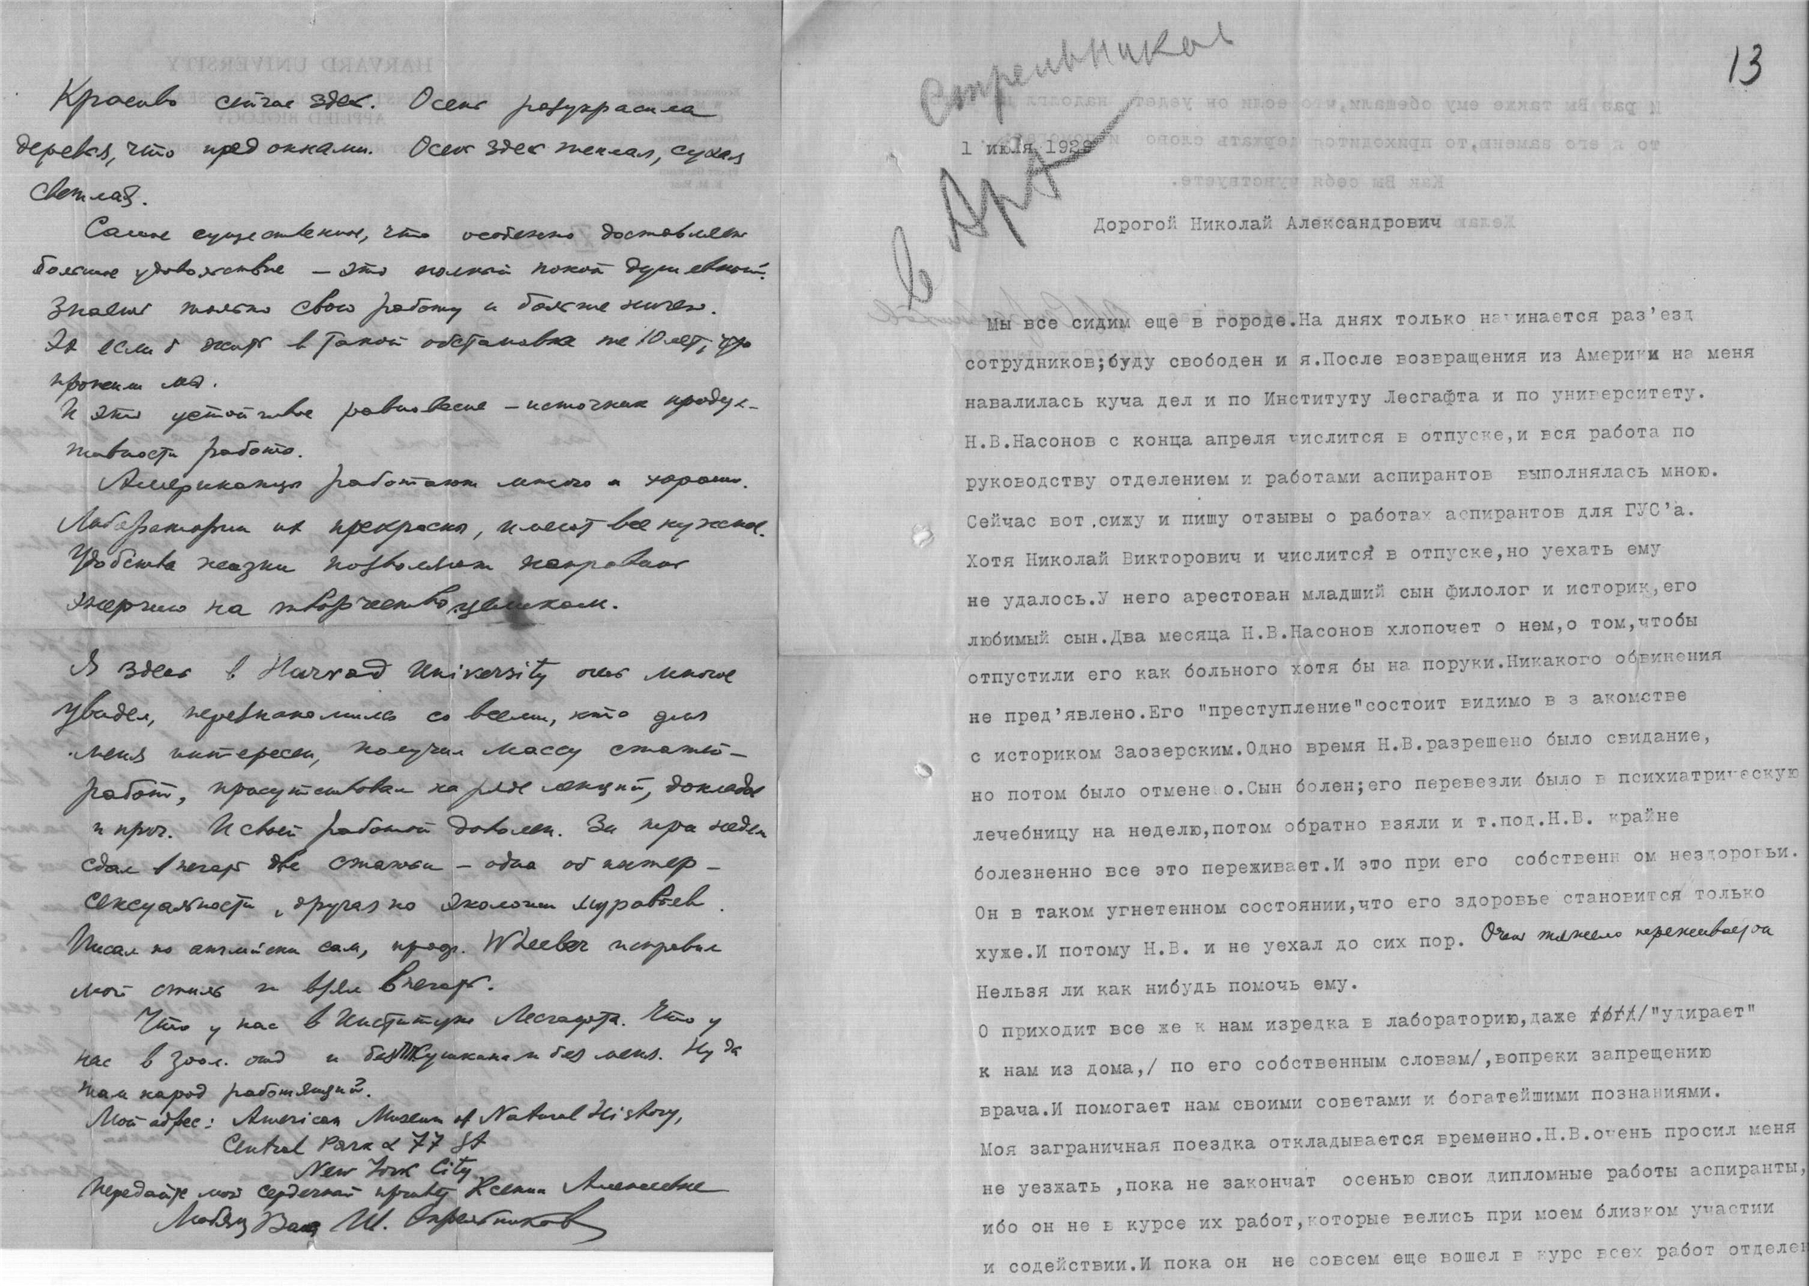 Красиво сейчас здесь. Осень разукрасила
деревья, что пред окнами. Осень здесь теплая, сухая
светлая.
Самое существенное, что особенно доставляет
большое удовольствие – это полный покой душевный.
Знаешь только свою работу и больше ничего.
Эх если б жить в такой обстановке те 10 лет, что
прожили мы.
И это устойчивое равновесие – источник продук-
тивности работы.
Американцы работают много и хорошо.
Лаборатории их прекрасны, имеют все нужное.
Удобства жизни позволяют направить
энергию на творчество целиком.
Я здесь в Harvard University очень многое
увидел, перезнакомился со всеми, кто для
меня интересен, получил массу статей –
работ, присутствовал на ряде лекций, докладов
и проч. И своей работой доволен. За три недели
сдал в печать две статьи – одна об интер-
сексуальности, другая по экологии муравьев.
Писал по английски сам, проф. Wheeler исправил
мой стиль и взял в печать.
Что у нас в Институте Лесгафта. Что у
нас в Зоол. отд и без Кушкана и без меня. Ну да
там народ работящий.
Мой адрес: American Museum of Natural History,
Central Park & 77 St
New York City
Передайте мой сердечный привет Ксении Алексеевне
Любящ Вас И. Стрельников
13
Стрельников
1 июля 1929
В Арх
Дорогой Николай Александрович
Мы все сидим еще в городе.На днях только начинается раз'езд
сотрудников;буду свободен и я.После возвращения из Америки на меня
навалилась куча дел и по Институту Лесгафта и по университету.
Н.В.Насонов с конца апреля числится в отпуске,и вся работа по
руководству отделением и работами аспирантов выполнялась мною.
Сейчас вот,сижу и пишу отзывы о работах аспирантов для ГУС'а.
Хотя Николай Викторович и числится в отпуске,но уехать ему
не удалось.У него арестован младший сын филолог и историк,его
любимый сын.Два месяца Н.В.Насонов хлопочет о нем,о том,чтобы
отпустили его как больного хотя бы на поруки.Никакого обвинения
не пред'явлено.Его "преступление"состоит видимо в з акомстве
с историком Заозерским.Одно время Н.В.разрешено было свидание,
но потом было отменено.Сын болен;его перевезли было в психиатрическую
лечебницу на неделю,потом обратно взяли и т.под.Н.В. крайне
болезненно все это переживает.И это при его собственн ом нездоровьи.
Он в таком угнетенном состоянии,что его здоровье становится только
хуже.И потому Н.В. и не уехал до сих пор. Очень тяжело переживает он
Нельзя ли как нибудь помочь ему.
О приходит все же к нам изредка в лабораторию,даже "удирает"
к нам из дома,/ по его собственным словам/,вопреки запрещению
врача.И помогает нам своими советами и богатейшими познаниями.
Моя заграничная поездка откладывается временно.Н.В.очень просил меня
не уезжать ,пока не закончат осенью свои дипломные работы аспиранты,
ибо он не в курсе их работ,которые велись при моем близком участии
и содействии.И пока он не совсем еще вошел в курс всех работ отделен